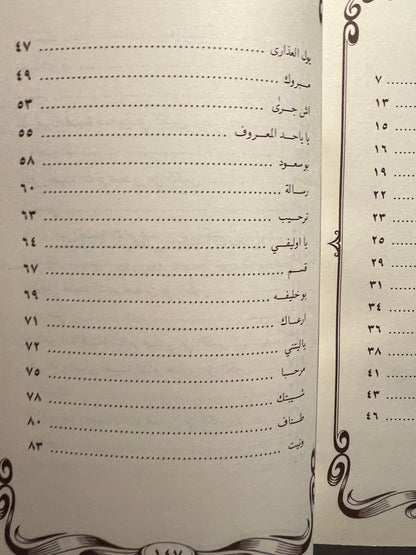 يول العذارى ٤٧
مبروك ٤٩
اش جرى ٥٣
يا ياحد المعروف ٥٥
بو سعود ٥٨
رسالة ٦٠
ترحيب ٦٣
يا اوليفي ٦٤
قسم ٦٧
بو خليفه ٦٩
ارعاك ٧١
ياليتني ٧٢
مرحبا ٧٥
شيبتك ٧٨
طناف ٨٠
ونيت ٨٣
١٤٧
٧
١٣
١٥
١٦
١٩
٢٢
٢٣
٢٥
٢٩
٣١
٣٤
٣٦
٣٨
٤١
٤٣
٤٦